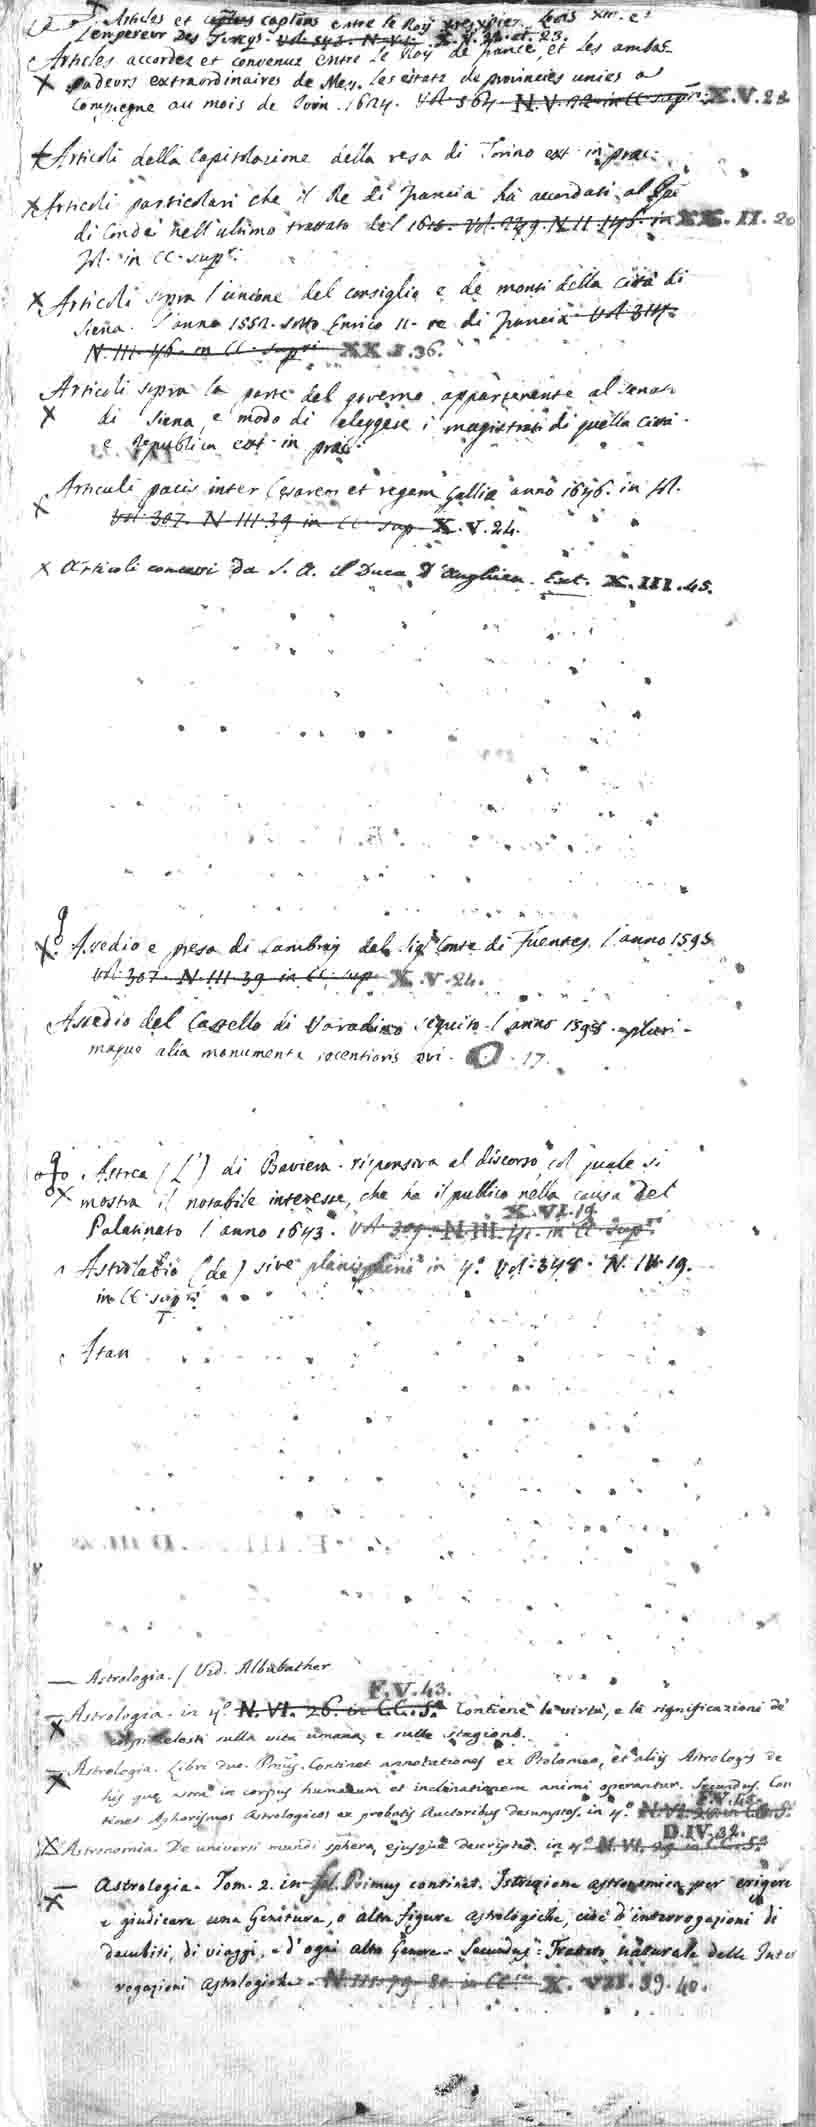 Articles et captons entre le Roy Louis XIII. et
L'empereur des Turcqs. Vol. 543. N. VI. X. V. et. 23.
Articles accordez et convenue entre Le Roy de france, et Les ambas
sadeurs extraordinaires de Mes. Les estats de provincies unies a
Compiegne au mois de Juin. 1624. Vol. 564. N. V. 12 in CC supri. X. V. 22
Articoli della Capitolazione della resa di Torino ext in prae.
Articoli particolari che il Re di francia ha accordati al
di Condé nell'ultimo trattato del 1616. Vol. 239. N. II. 146. in XX. II. 20
fol. in CC. supr.
Articoli sopra l'unione del consiglio e de monti della città di
Siena. l'anno 1552. sotto Enrico II. re di francia Vol 314.
N. III. 46. in CC. supri XX I. 36.
Articoli sopra la parte del governo appartenente al senato
di Siena, e modo di eleggere i magistrati di quella città.
e republica ext in prae.
Articuli pacis inter Cesarem et regem Galliae anno 1646. in fol.
Vol. 307. N. III. 39 in CC sup X. V. 24.
Articoli concessi da S. A. il Duca D'Anghien. Ext. X. III. 45.
Assedio e presa di Cambray del Sigr Conte di Fuentes. l'anno 1595
Vol. 307. N. III. 39 in CC. sup X. V. 24.
Assedio del Castello di Varadino seguito l'anno 1598. apluri-
maque alia monumenta recentioris evi. O. 17.
Astrea (L') di Baviera. risponsiva al discorso, col quale si
mostra il notabile interesse, che ha il publico nella causa del
X. VI. 19.
Palatinato l'anno 1643. Vol 309. N. III. 41. in CC supri
Astrolabio (de) sive planispherio in 4.º Vol. 348. N. IV. 19.
in CC supri
Atan
Astrologia. / Vid. Albubather
F. V. 43.
Astrologia. in 4º N. VI. 26. in C.C. Sª Contiene le virtù, e le significazioni de'
corpi celesti sulla vita umana, e sulle stagioni.
Astrologia. Libri duo. Primus. Continet annotationes ex Ptolomeo, et aliis Astrologis de
his que astra in corpus humanum et inclinationem animi operantur. Secundus. Con
F. V. 43.
tinet Aphorismos Astrologicos ex probatis Auctoribus desumptos. in 4º N. VI. 26 in C.C. S.
D. IV. 32.
Astronomia. De universi mundi sphera, ejusque descriptio. in 4º N. VI. 29 in C.C. Sª
Astrologia. Tom. 2. in fol. Primus continet. Istruzione astronomica per erigere
e giudicare una Genitura, o altra figura astrologiche, cioè d'interrogazioni di
decubiti, di viaggi, e d'ogni altro Genere. Secundus. Trattato naturale delle Inter
rogazioni astrologiche. N. III. 79. 80. in CC X. VII. 39. 40.